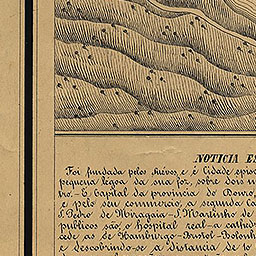 NOTICIA ES
Foi fundada pelos Suevos, e é Cidade epis
pequena legoa da sua foz, sobre dois m
bro.- É capital da provincia do Douro,
e pelo seu commercio, a segunda Ca
S. Pedro de Miragaia - S. Martinho de
publicos são, o hospital real - a cathed
cede ao de Hamburgo - Bristol - Bolonh
e descobrindo-se a distancia de 10